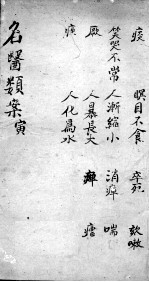 痰 瞑目不食 卒死 欬嗽
笑哭不常 人漸縮小 消 喘
厥 人暴長大 瘧
人化為水
名醫類案寅